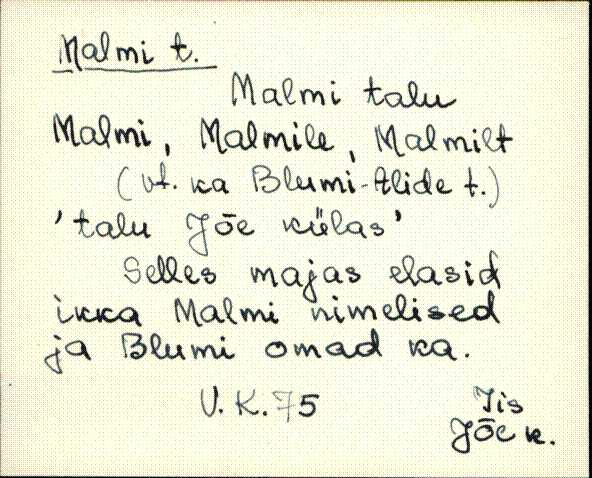 Malmi t.
Malmi talu
Malmi, Malmile, Malmilt
(vt. ka Blumi-Alide t.)
'talu Jõe külas'
Selles majas elasid
ikka Malmi nimelised
ja Blumi omad ka.
V. K. 75
Iis
Jõe k.